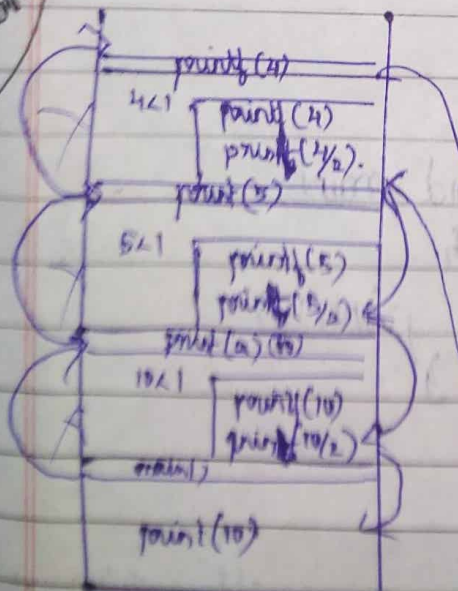 printf (4)
4<1
printf (4)
print (4/2).
print (5)
5<1
printf (5)
print (5/2)
print (a) (10)
10<1
printf (10)
print (10/2)
main()
print (10)